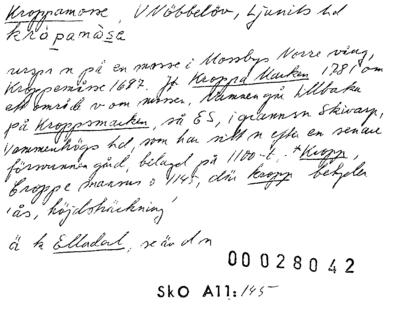 Kroppamosse, V Nöbbelöv, Ljunits hd
kròpamåsa
urspr n på en mosse i Mossbys Norre vång,
Kroppemåsse 1687. Jf Kroppa Marken 1781 om
ett område v om mossen. Namnen går tillbaka
på Kroppsmarken, så ES, i grannsn Skivarp,
Vemmenhögs hd, som har sitt n efter en senare
försvunnen gård, belagd på 1100-t. *Kropp,
Croppe mansus o 1145, där kropp betyder
'ås, höjdsträckning'
ä k Elladal, se äv d n
00028042
SkO A11: 145